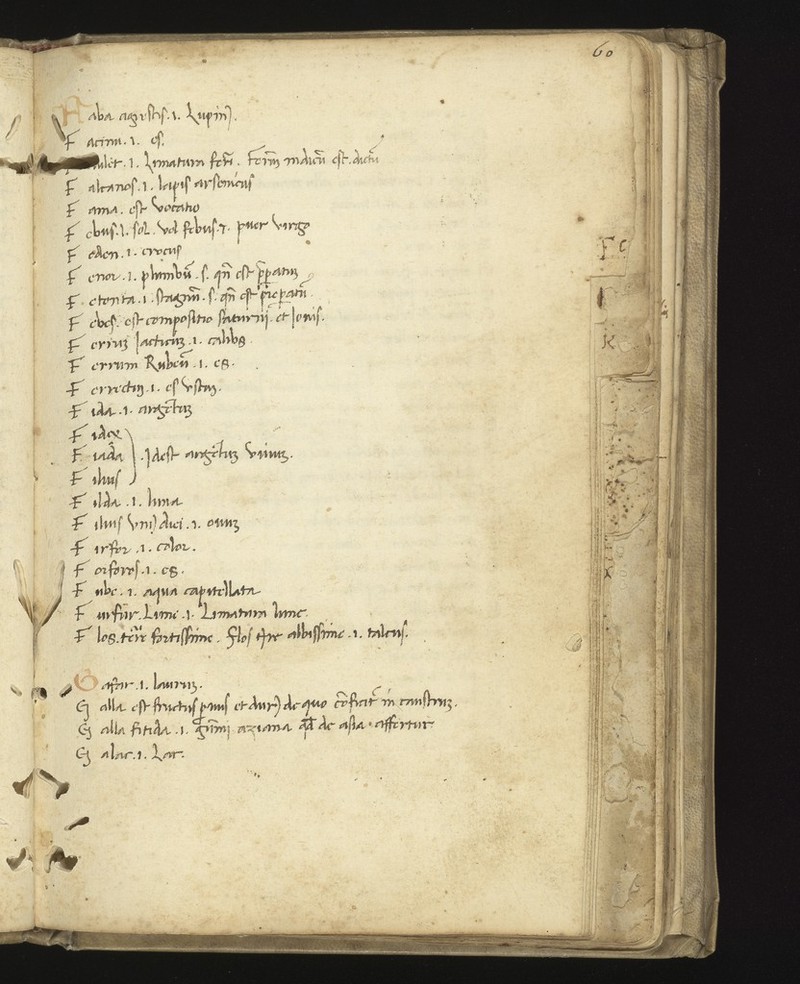 60
Faba agrestis .i. Lupini.
F acinu .i. es.
F alet .i. Limatura ferri. Ferrum indicum est dictum
F alcanos .i. lapis arsenicus
F ama. est vocatio
F ebus .i. sol. vel febus .i. puer virgo
F eden .i. crocus
F enor .i. plumbū .s. qñ est p̄paratum
F etonta .i. stagnū .s. qñ est preparatū
F ebes. est compositio saturni et Jovis.
F errum Jacticum .i. calibs
F errum Rubeū .i. es.
F errectum .i. es ustum.
F ida .i. argētum
F idex
F iada } .Jdest argētum vivum.
F ilius
F ilda .i. luna
F ilius unius diei .i. ovum
F irfor .i. color.
F orfores .i. es.
F ube .i. aqua capitellata
F urfur Lune .i. Limatura lune
F los terre fortissime. flos terre albissime .i. talcus.
Gafar .i. laurum.
G alla est fructus parvus et durus de quo cōficitur in caustrum.
G alla fitida .i. gūmi aziana quod de asia affertur
G alac .i. Lac.
F
K